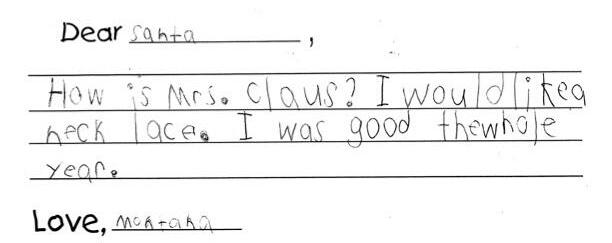 Dear Santa,
How is Mrs. Claus? I would like a
neck lace. I was good thewhole
year.
Love, Montana